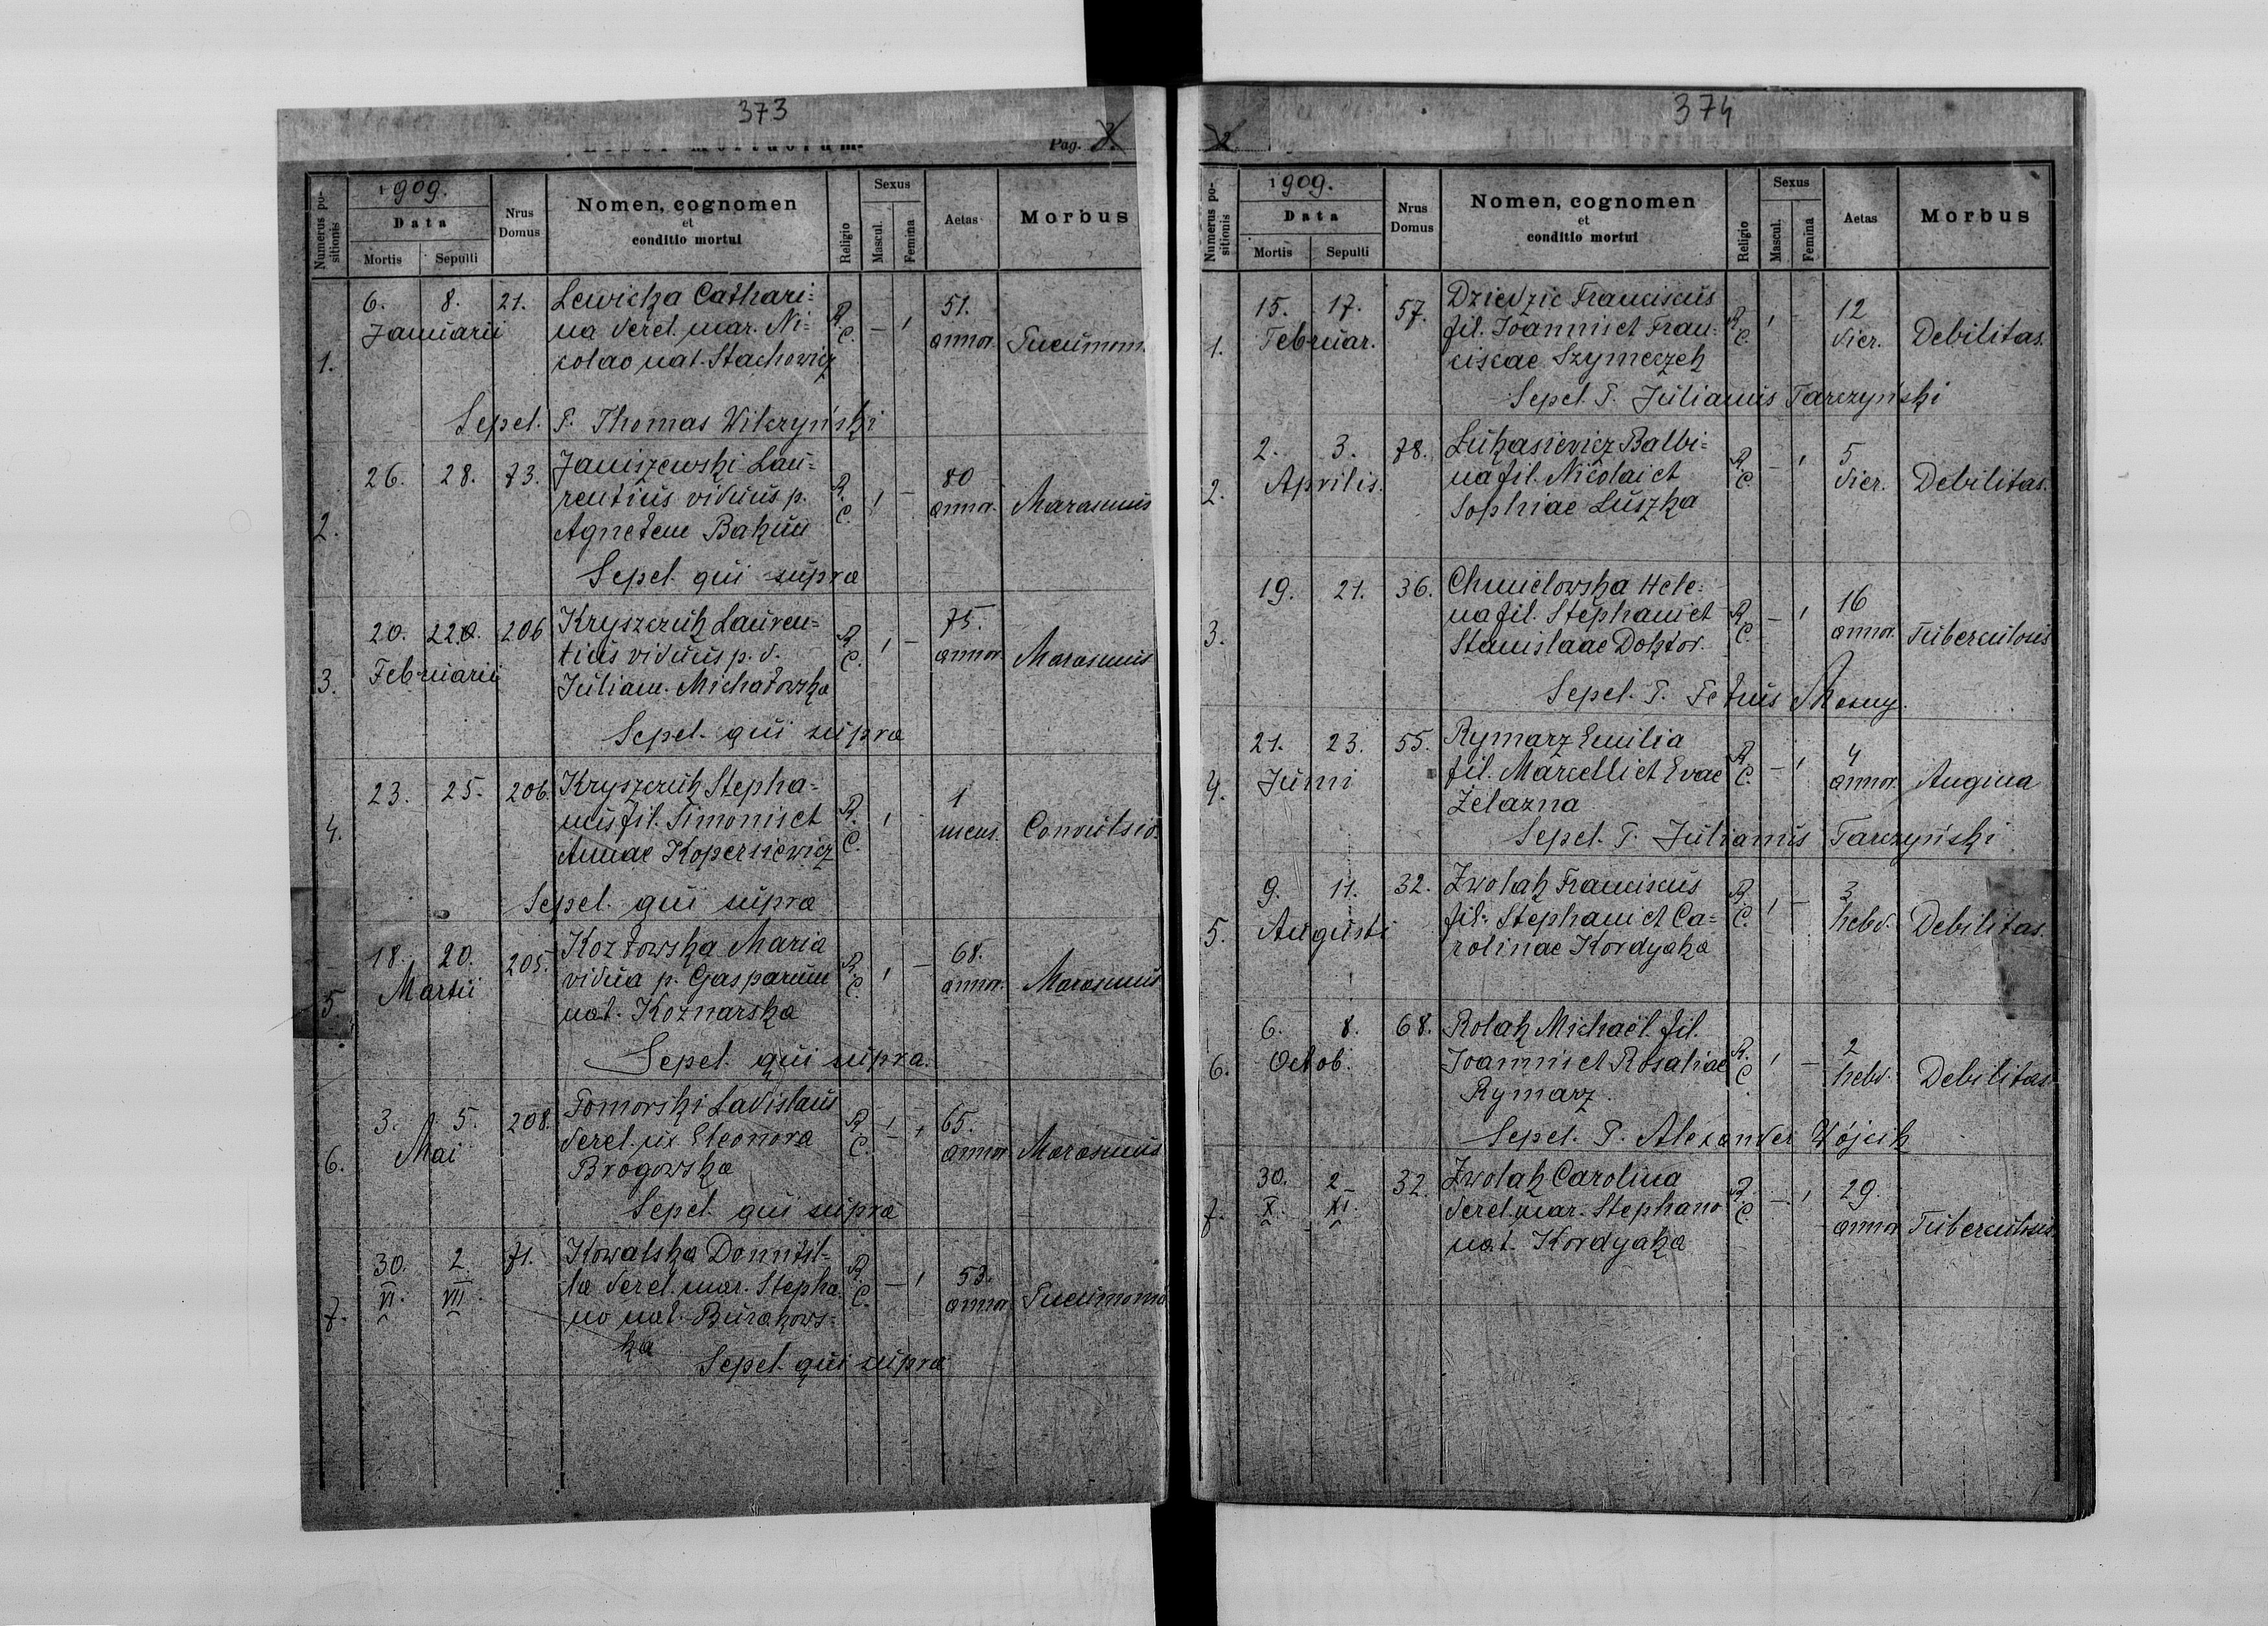 373
Liber mortuorum.
Pag.
Numerus positionis
1909.
Data
Mortis Sepulti
Nrus Domus
Nomen, cognomen
et
conditio mortui
Religio
Sexus
Mascul. Femina
Aetas
Morbus
1. 6. 8. 21. Lewicka Cathari= R. – 1 51.
Januarii na derel. mar. Ni= C. annor. Pneumon.
colao nat. Stachowicz
Sepel. P. Thomas Wilczyński
2. 26. 28. 73. Janiszewski Lau= R. 1 – 80
rentius viduus p. C. annor. Marasmus
Agnetem Bakun
Sepel. qui supra
3. 20. 22. 206 Kryszczuk Lauren= R. 1 – 75.
Februarii tius viduus p. d. C. annor Marasmus
Juliam. Michałowska
Sepel. qui supra
4. 23. 25. 206. Kryszczuk Stepha= R. 1 1
nus fil. Simonis et C. mens. Convulsio.
Annae Kopersiewicz
Sepel. qui supra
5 18. 20. 205. Kozłowska Maria R. 1 – 68.
Martii vidua p. Gasparum C. annor. Marasmus
nat. Koznarska
Sepel. qui supra.
6. 3. 5. 208. Pomorski Ladislaus R. 65.
Mai derel. ux Eleonora C. annor Marasmus
Brogowska
Sepel. qui supra
7. 30. 2. 71. Kowalska Domitil= R. – 1 53.
VI. VII la derel. mar. Stepha C. annor Pneumonia
no nat. Burakows=
ka
Sepel. qui supra
374
Numerus positionis
1909.
Data
Mortis Sepulti
Nrus Domus
Nomen, cognomen
et
conditio mortui
Religio
Sexus
Mascul. Femina
Aetas
Morbus
1. 15. 17. 57. Dziedzic Franciscus R. 1 – 12
Februar. fil. Joannis et Fran= C. dier. Debilitas.
ciscae Szymeczek
Sepel. P. Julianus Tarczyński
2. 2. 3. 78. Łukasiewicz Balbi= R. – 1 5
Aprilis. na fil. Nicolai et C. dier. Debilitas.
Sophiae Luszka
3. 19. 21. 36. Chmielowska Hele= R. – 1 16
na fil. Stephani et C. annor. Tuberculosis
Stanislaae Doktor.
Sepel. P. Petrus
4. 21. 23. 55. Rymarz Emilia R. – 1 4
Junii fil. Marcelli et Evae C. annor. Angina
Żelazna
Sepel. P. Julianus Tarczyński
5. 9. 11. 32. Zwolak Franciscus R. 1 – 3
Augusti fil. Stephani et Ca= C. hebd. Debilitas.
rolinae Kordyaka
6. 6. 8. 68. Rolak Michaël. fil. R. 1 – 2
Octob. Joannis et Rosaliae C. hebd. Debilitas
Rymarz.
Sepel. P. Alexander Wójcik
7. 30. 2 32. Zwolak Carolina R. – 1 29.
X. XI. derel. mar. Stephano C. annor Tuberculosis
nat. Kordyaka